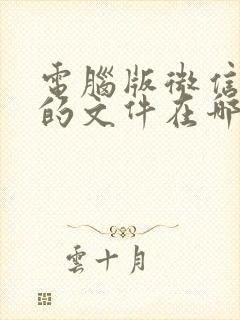 電腦版微信
的文件在哪
雲十月